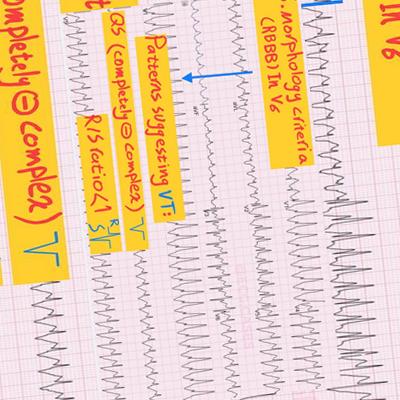 In V6
. morphology criteria
(RBBB) In V6
Patterns suggesting VT:
QS (completely ⊖ complex)
R/S ratio<1 R/S
ompletely ⊖ complex)